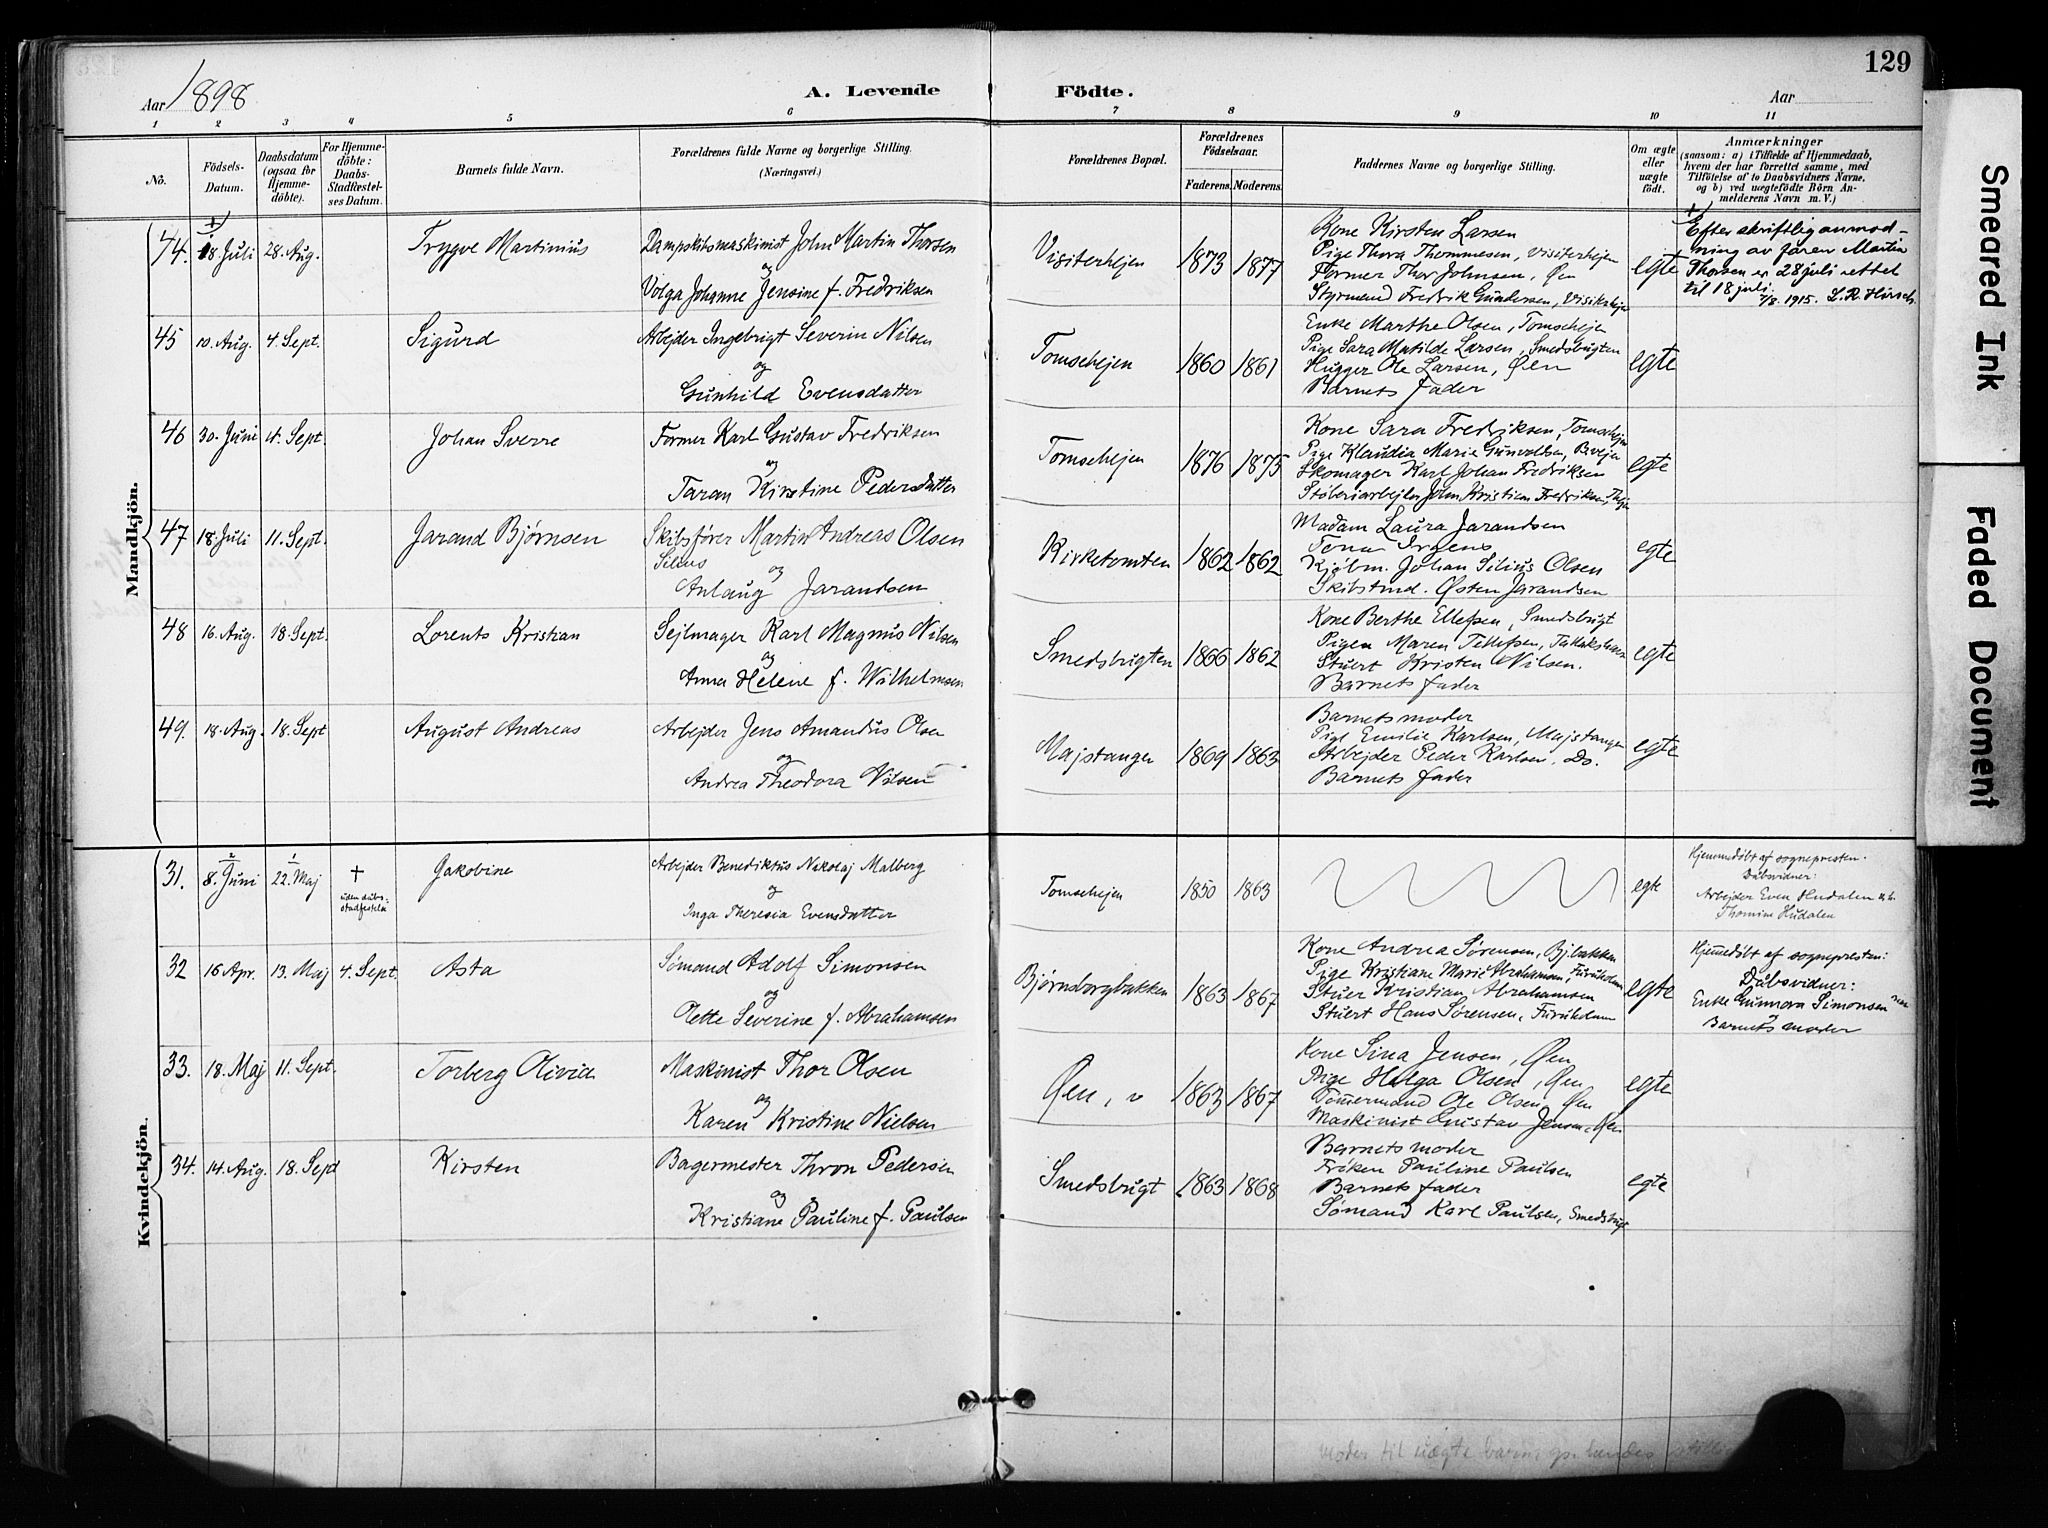 129
Aar 1898
A. Levende Födte.
Aar
1 2 3 4 5 6 7 8 9 10 11
No.
Födsels-
Datum.
Daabsdatum
(ogsaa for
Hjemme-
döbte).
For Hjemme-
döbte:
Daabs-
Stadfæstel-
ses Datum.
Barnets fulde Navn.
Forældrenes fulde Navne og borgerlige Stilling.
(Næringsvei.)
Forældrenes Bopæl.
Forældrenes
Födselsaar.
Faderens. Moderens.
Faddernes Navne og borgerlige Stilling.
Om ægte
eller
uægte
födt.
Anmærkninger
(saasom: a) i Tilfælde af Hjemmedaab,
hvem der har forrettet samme, med
Tilföielse af to Daabsvidners Navne,
og b) ved uegtefödte Börn An-
melderens Navn m. V.)
Mandkjön.
44. 18 Juli 28. Aug. Trygve Martinius
Dampskibsmaskinist John Martin Thorsen
og
Volga Johanne Jensine f. Fredriksen
Visiterhejen 1873 1877
Kone Kirsten Larsen
Pige Thora Thommesen, Visiterhejen
Former Thor Johnsen, Øen
Styrmand Fredrik Gundersen, Visiterhejen
egte
Efter skriftlig anmod-
ning av faren Martin
Thorsen er 28 juli rettet
til 18 juli.
1915. L.R.
45 10. Aug. 4. Sept. Sigurd
Arbejder Ingebrigt Severin Nilsen
og
Gunhild Evensdatter
Tomsehejen 1860 1861
Enke Marthe Olsen, Tomsehejen
Pige Sara Matilde Larsen, Smedsbugten
Hugger Ole Larsen, Øen
Barnets fader
egte
46 30. Juni 4. Sept. Johan Sverre
Former Karl Gustav Fredriksen
og
Taran Kirstine Pedersdatter
Tomsehejen 1876 1875
Kone Sara Fredriksen, Tomsehejen
Pige Klaudia Marie
Skomager Karl Johan Fredriksen
Støberiarbejder John Kristian Fredriksen,
egte
47 18. Juli 11. Sept. Jarand Bjørnsen
Skibsfører Martin Andreas Olsen
Silius
og
Anlaug Jarandsen
Kirketomten 1862 1862
Madam Laura Jarandsen
Tena Irgens
Kjøbm. Johan Silius Olsen
Skibstmd. Østen Jarandsen
egte
48 16. Aug. 18. Sept. Lorents Kristian
Sejlmager Karl Magnus Nilsen
og
Anna Helene f. Wilhelmsen
Smedsbugten 1866 1862
Kone Berthe Ellefsen, Smedsbugt
Pigen Maren Tellefsen,
Stuert Kristen Nilsen.
Barnets fader
egte
49. 18. Aug. 18. Sept August Andreas
Arbejder Jens Amandus Olsen
og
Andrea Theodora Nilsen
Majstangen 1869 1863
Barnets moder
Pige Emilie Karlsen, Majstangen
Arbejder Peder Karlsen, Do.
Barnets fader
egte
Kvindekjön.
31. 8. Juni 22. Maj †
uden dåbs-
stadfestelse
Jakobine
Arbejder Benediktus Nikolaj Malberg
og
Inga Theresia Evensdatter
Tomsehejen 1850 1863
egte
Hjemmedøbt af sognepresten.
Dåbsvidner:
Arbejder Even Hudalen
Thomine Hudalen
32 16 Apr. 13. Maj 4. Sept. Asta
Sømand Adolf Simonsen
og
Olette Severine f. Abrahamsen
Bjørnsborgbakken 1863 1867
Kone Andrea Sørensen, Bj.bakken
Pige Kristiane Marie Abrahamsen, Furuholmen
Stuer Kristian Abrahamsen
Stuert Hans Sørensen, Furuholmen
egte
Hjemmedøbt af sognepresten:
Dåbsvidner:
Enke Gunnora Simonsen
Barnets moder
33. 18. Maj 11. Sept. Torberg Olivia
Maskinist Thor Olsen
og
Karen Kristine Nielsen
Øen, v 1863 1867
Kone Sina Jensen, Øen
Pige Helga Olsen, Øen
Tømmermand Ole Olsen, Øen
Maskinist Gustav Jensen, Øen
egte
34. 14. Aug. 18. Sept Kirsten
Bagermester Thron Pedersen
og
Kristiane Pauline f. Paulsen
Smedsbugt 1863 1868
Barnets moder
Frøken Pauline Paulsen
Barnets fader
Sømand Karl Paulsen, Smedsbugt
egte
moder til uægte barn,
Smeared Ink
Faded Document